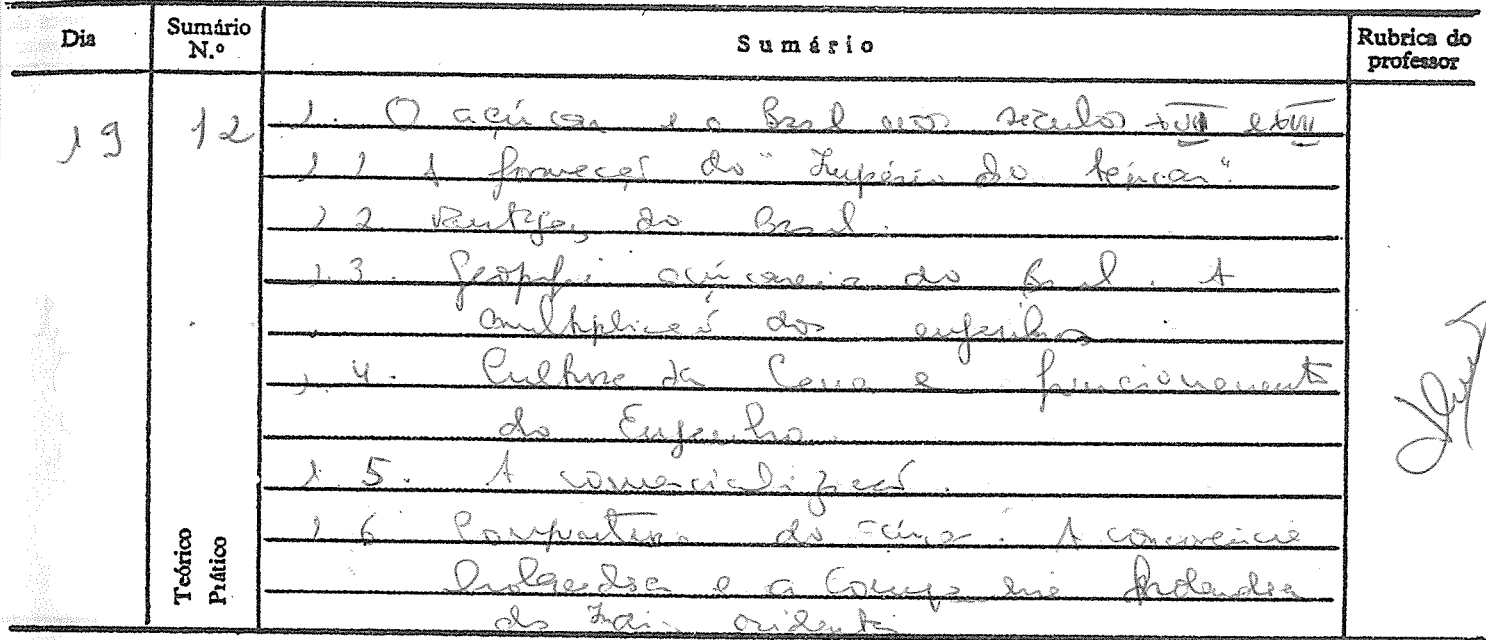 Dia Sumário N.º Sumário Rubrica do professor
19 12 1. O açúcar e o Brasil nos séculos XVI e XVII
1.1 A formação do "Império do Açúcar".
1.2. Vantagens do Brasil.
1.3. Geografia açúcareira do Brasil. A
multiplicação dos engenhos.
1.4. Cultura da Cana e funcionamento
do Engenho.
1.5. A comercialização.
1.6 do A concorrência
holandesa e a Companhia holandesa
das Índias ocidentais
Teórico
Prático